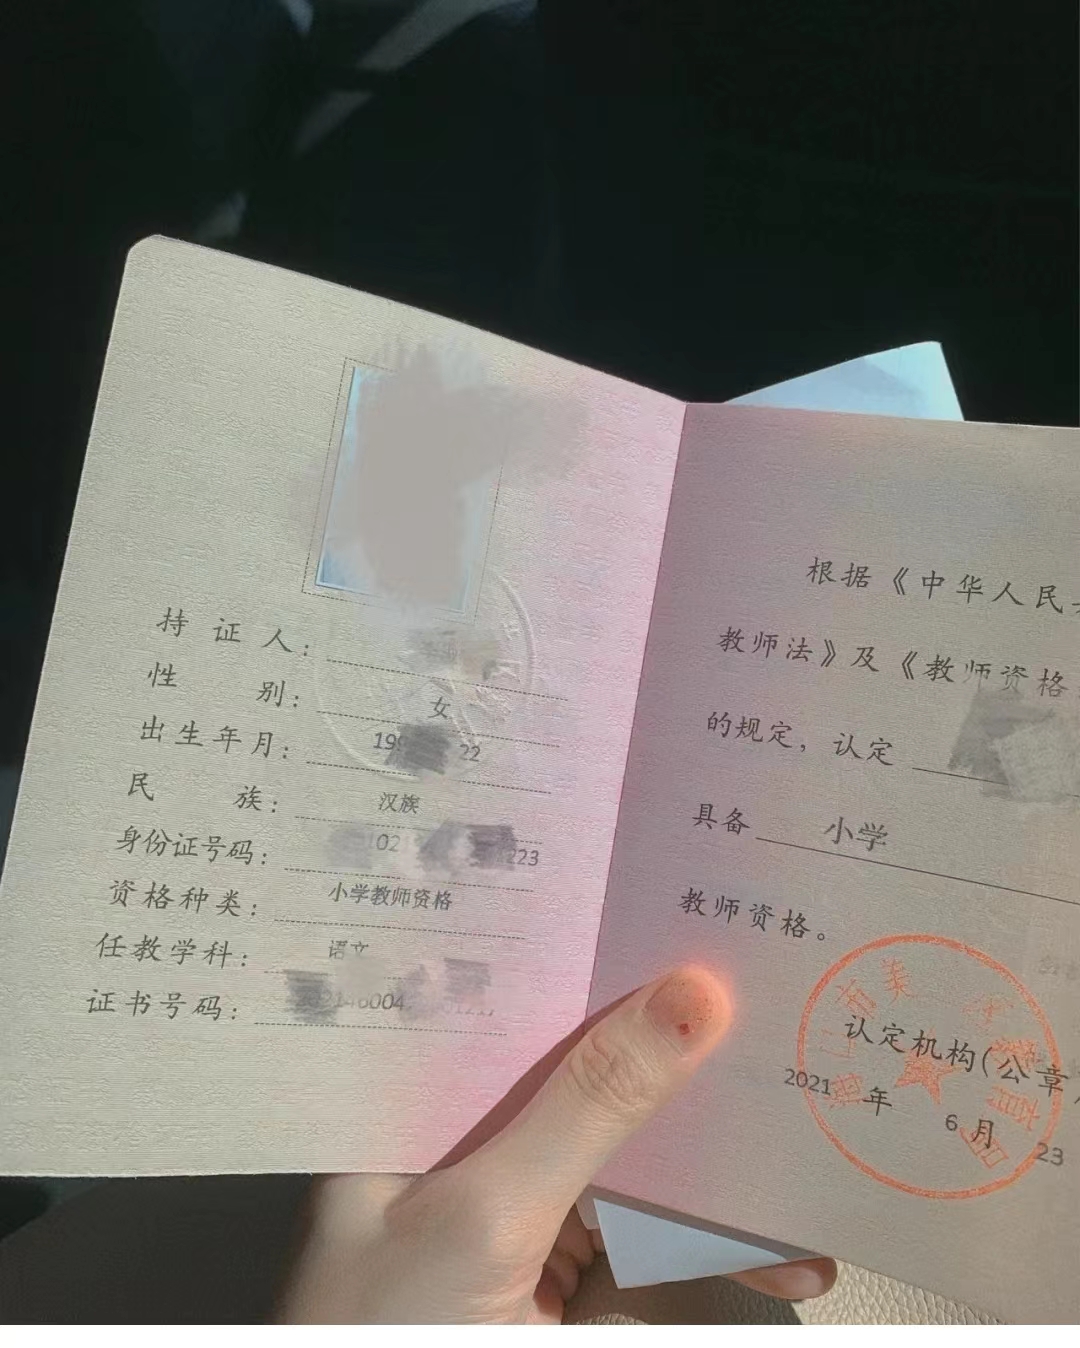 持证人：
性别：女
出生年月：199 22
民族：汉族
身份证号码：102 223
资格种类：小学教师资格
任教学科：语文
证书号码：
根据《中华人民
教师法》及《教师资格
的规定，认定
具备 小学
教师资格。
认定机构（公章
2021年 6月 23